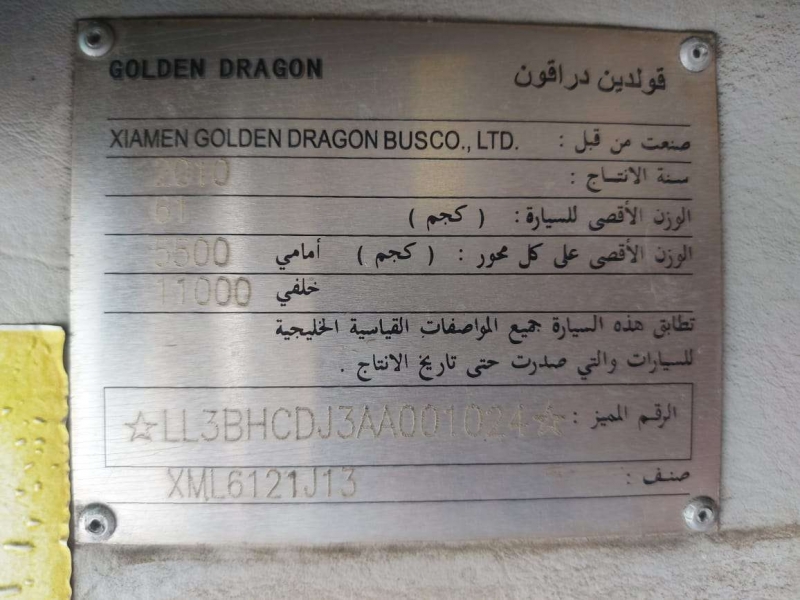 GOLDEN DRAGON قولدين دراقون
صنعت من قبل : XIAMEN GOLDEN DRAGON BUSCO., LTD.
سنة الانتاج : 2010
الوزن الأقصى للسيارة : ( كجم ) G1
الوزن الأقصى على كل محور : ( كجم ) أمامي 5500
خلفي 11000
تطابق هذه السيارة جميع المواصفات القياسية الخليجية
للسيارات والتي صدرت حتى تاريخ الانتاج .
الرقم المميز : ☆LL3BHCDJ3AA001024☆
صنف : XML6121J13